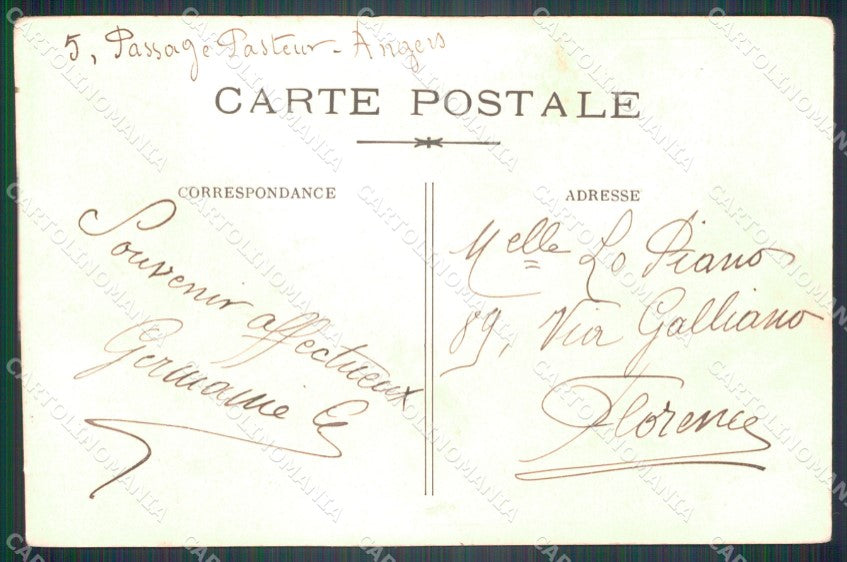 5, Passage Pasteur - Angers
CARTE POSTALE
CORRESPONDANCE
Souvenir affectueux
Germaine G
ADRESSE
Melle Lo Piano
89, Via Galliano
Florence
CARTOLINOMANIA